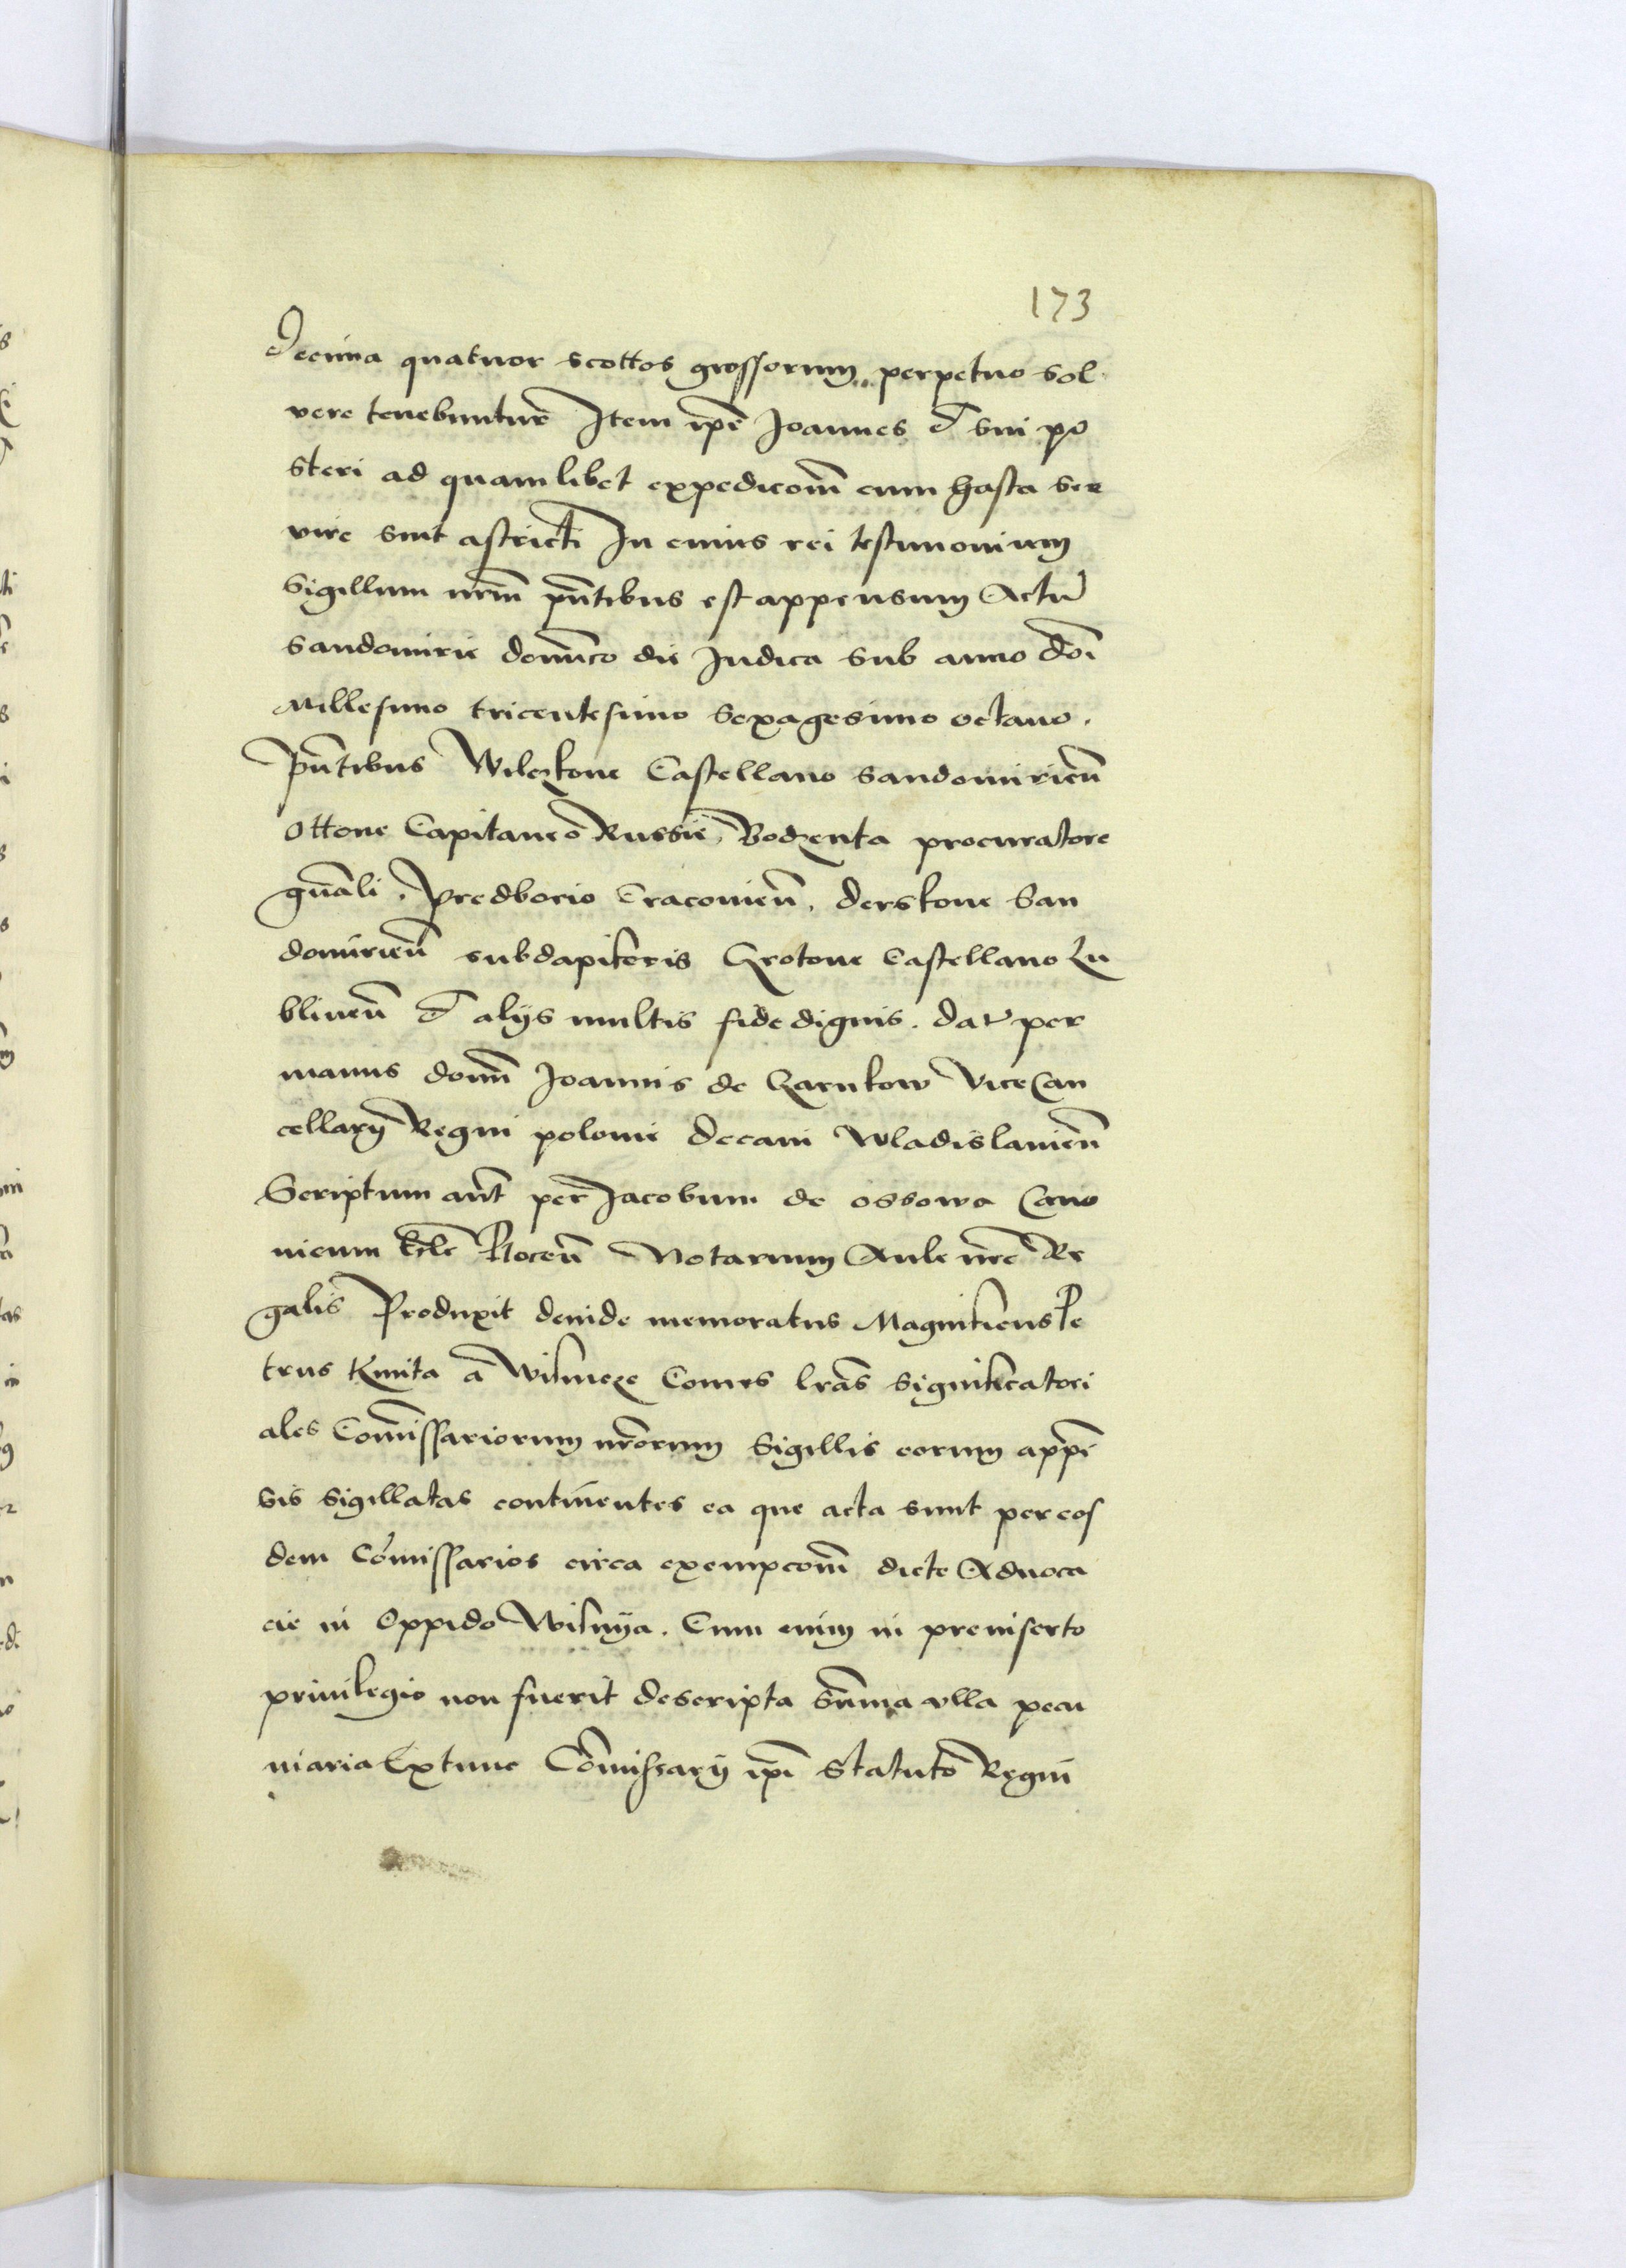 173
decima quatuor scottos grossorum perpetuo sol
vere tenebuntur Item ip̄e Joannes et sui po
steri ad quamlibet expedicōm cum hasta ser
vire sint astricti In cuius rei testimonium
sigillum nr̄m pn̄tibus est appensum Actū
Sandomirie domīco die Judica sub anno Dnī
Millesimo tricentesimo sexagesimo octauo.
Pn̄tibus Wilczkone Castellano Sandomirien̄
Ottone Capitaneo Russie, Bodzenta procuratore
gn̄ali, Predborio Cracovien̄, Derskone San
domirien̄ subdapiferis Grotone Castellano Lu
blinen̄ et alijs multis fidedignis. Dat̄ per
manus domn̄i Joannis de Czarnkow ViceCan
cellarij Regni polonie decani Wladislauien̄
Scriptum aut̄ per Jacobum de ossowa Cano
nicum Ecl̄e Plocen̄ Notarium Aule nr̄e Re
galis Produxit deinde memoratus Magnificus Pe
trus Kmita a Wisnicze Comes lr̄as significatori
ales Com̄issariorum nr̄orum Sigillis eorum appē
sis sigillatas continentes ea que acta sunt per eos
dem Cōmissarios circa exempcōm dicte Aduoca
cie in Oppido Wisnija. Cum enim in preinserto
priuilegio non fuerit descripta Sum̄a vlla pecu
niaria Extunc Cōmissarij ip̄i Statuto Regni